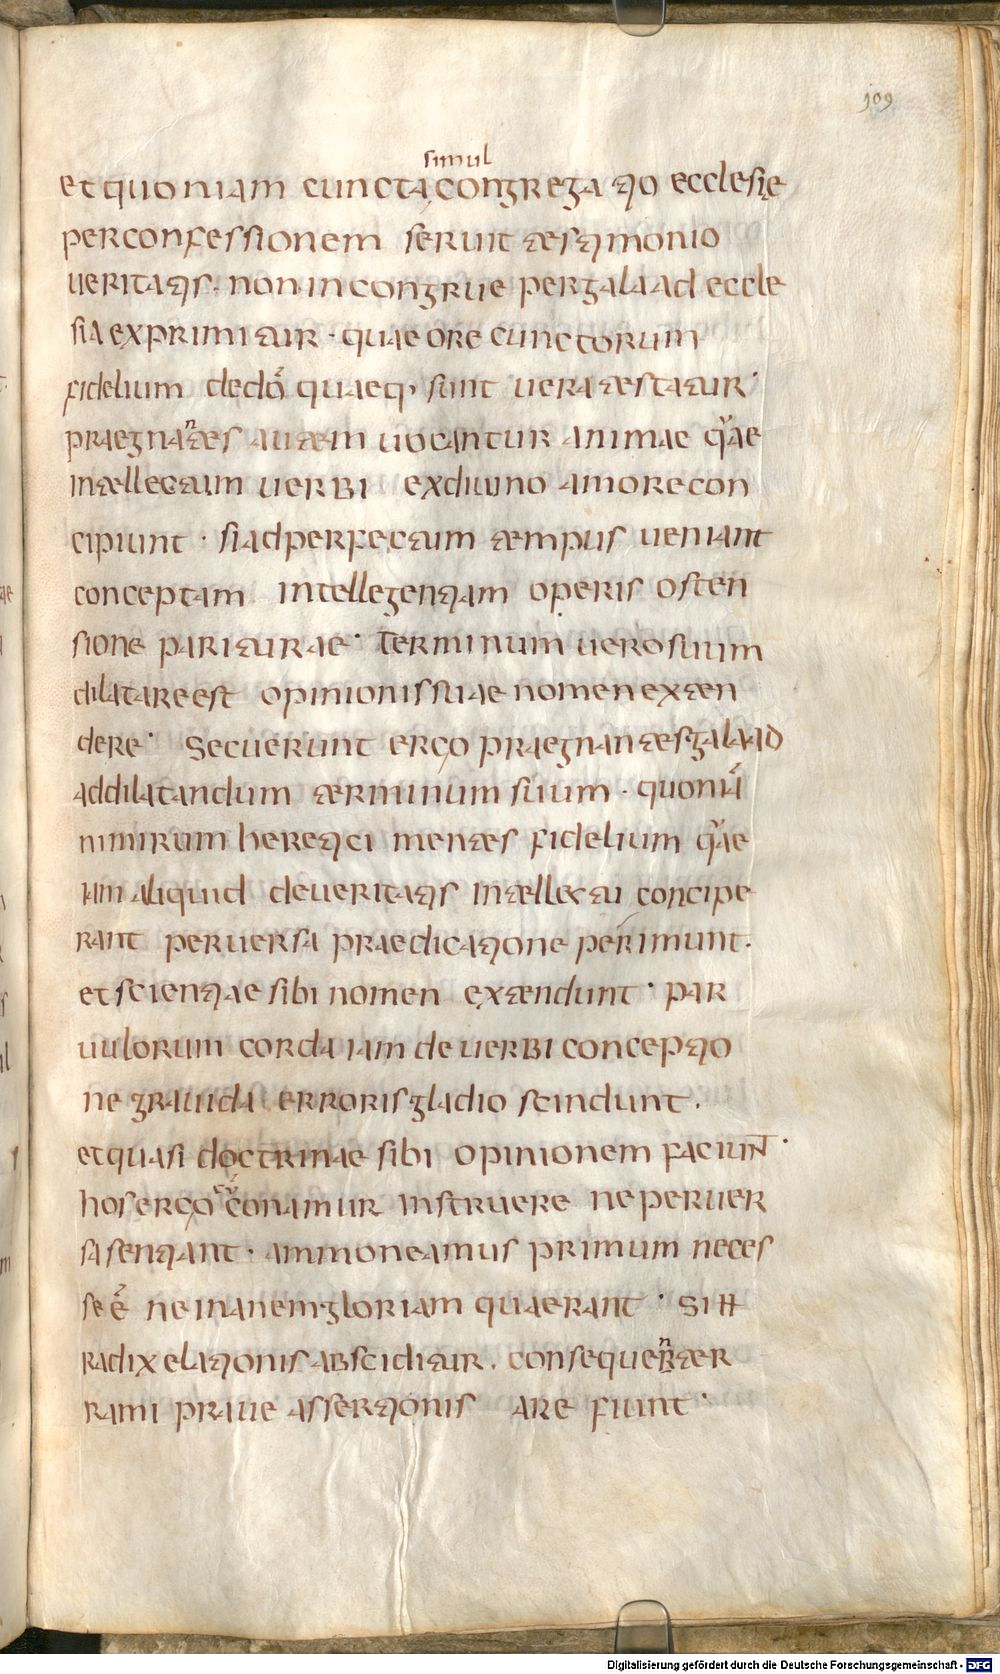 109
simul
et quoniam cuncta congregatio ecclesię
per confessionem seruit testimonio
ueritatis. non incongrue per galaad eccle
sia exprimitur · quae ore cunctorum
fidelium de dō quaeq, sunt uera testatur·
praegnantes autem uocantur animae quae
intellectum uerbi ex diuino amore con
cipiunt · si ad perfectum tempus ueniant
conceptam intellegentiam operis osten
sione pariturae· Terminum uero suum
dilatare est opinionis suae nomen exten
dere· Secuerunt erco praegnantes galaad
ad dilatandum terminum suum · quoniā
nimirum heretici mentes fidelium quae
iam aliquid de ueritatis intellectu concipe
rant peruersa praedicatione perimunt.
et scientiae sibi nomen extendunt · par
uulorum corda iam de uerbi conceptio
ne grauida erroris gladio scindunt.
et quasi doctrinae sibi opinionem faciunt·
hos erco conamur instruere ne peruer
sa sentiant · ammoneamus primum neces
se ē ne inanem gloriam quaerant · Si H
radix elationis absciditur. consequenter
rami praue assertionis are fiunt·
Digitalisierung gefördert durch die Deutsche Forschungsgemeinschaft - DFG